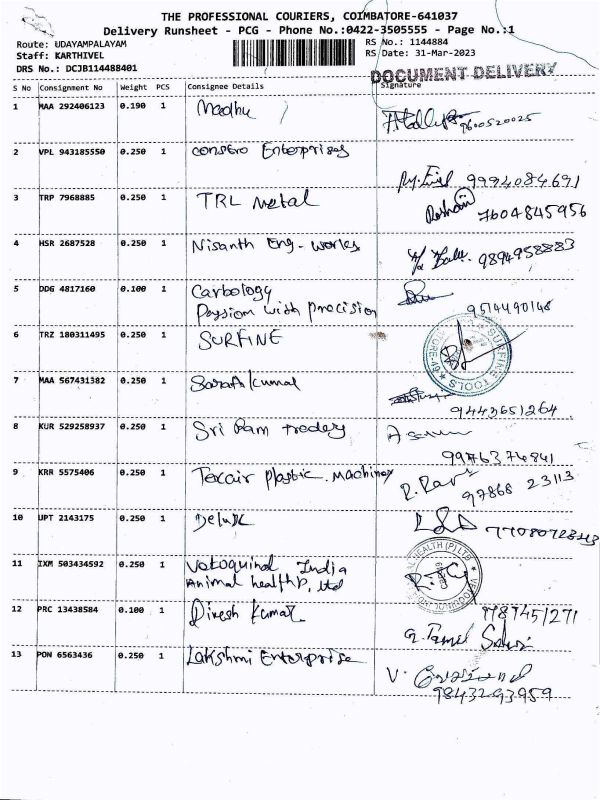 THE PROFESSIONAL COURIERS, COIMBATORE-641037
Delivery Runsheet - PCG - Phone No.:0422-3505555 - Page No.:1
Route: UDAYAMPALAYAM
RS No.: 1144884
Staff: KARTHIVEL
RS Date: 31-Mar-2023
DRS No.: DCJB114488401
DOCUMENT DELIVERY
S No Consignment No Weight PCS Consignee Details Signature
1 MAA 292406123 0.190 1 Madhu
9600520025
2 VPL 943185550 0.250 1 constro Enterprises
9994084691
3 TRP 7968885 0.250 1 TRL metal
7604845956
4 HSR 2687528 0.250 1 Nisanth Eng. works
9894958883
5 DDG 4817160 0.100 1 Carbology
Passion with precision
9514490148
6 TRZ 180311495 0.250 1 SURFINE
SURFINE TOOLS
7 MAA 567431382 0.250 1 Sarathkumar
9443651264
8 KUR 529258937 0.250 1 Sri Ram traders
9976374841
9 KRR 5575406 0.250 1 Texair plastic. machinery
R. Ravi
97868 23113
10 UPT 2143175 0.250 1 Delux
11 IXM 503434592 0.250 1 Vetoquinol India
Animal health P. ltd
12 PRC 13438584 0.100 1 Dinesh Kumar
9787451271
13 PON 6563436 0.250 1 Lakshmi Enterprise
9843293959